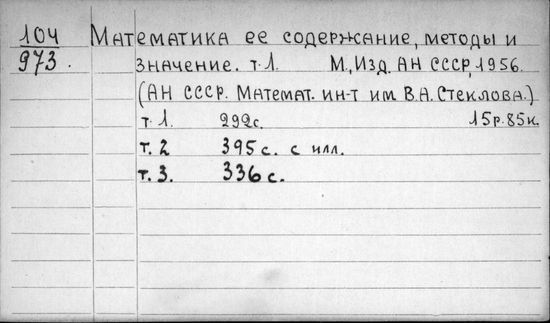 104 Математика ее содержание, методы и
973. значение. т.1. М., Изд. АН СССР, 1956.
(АН СССР. Математ. ин-т им В.А. Стеклова.)
т.1. 292с. 15р.85к.
т.2 395с. с илл.
т.3. 336с.